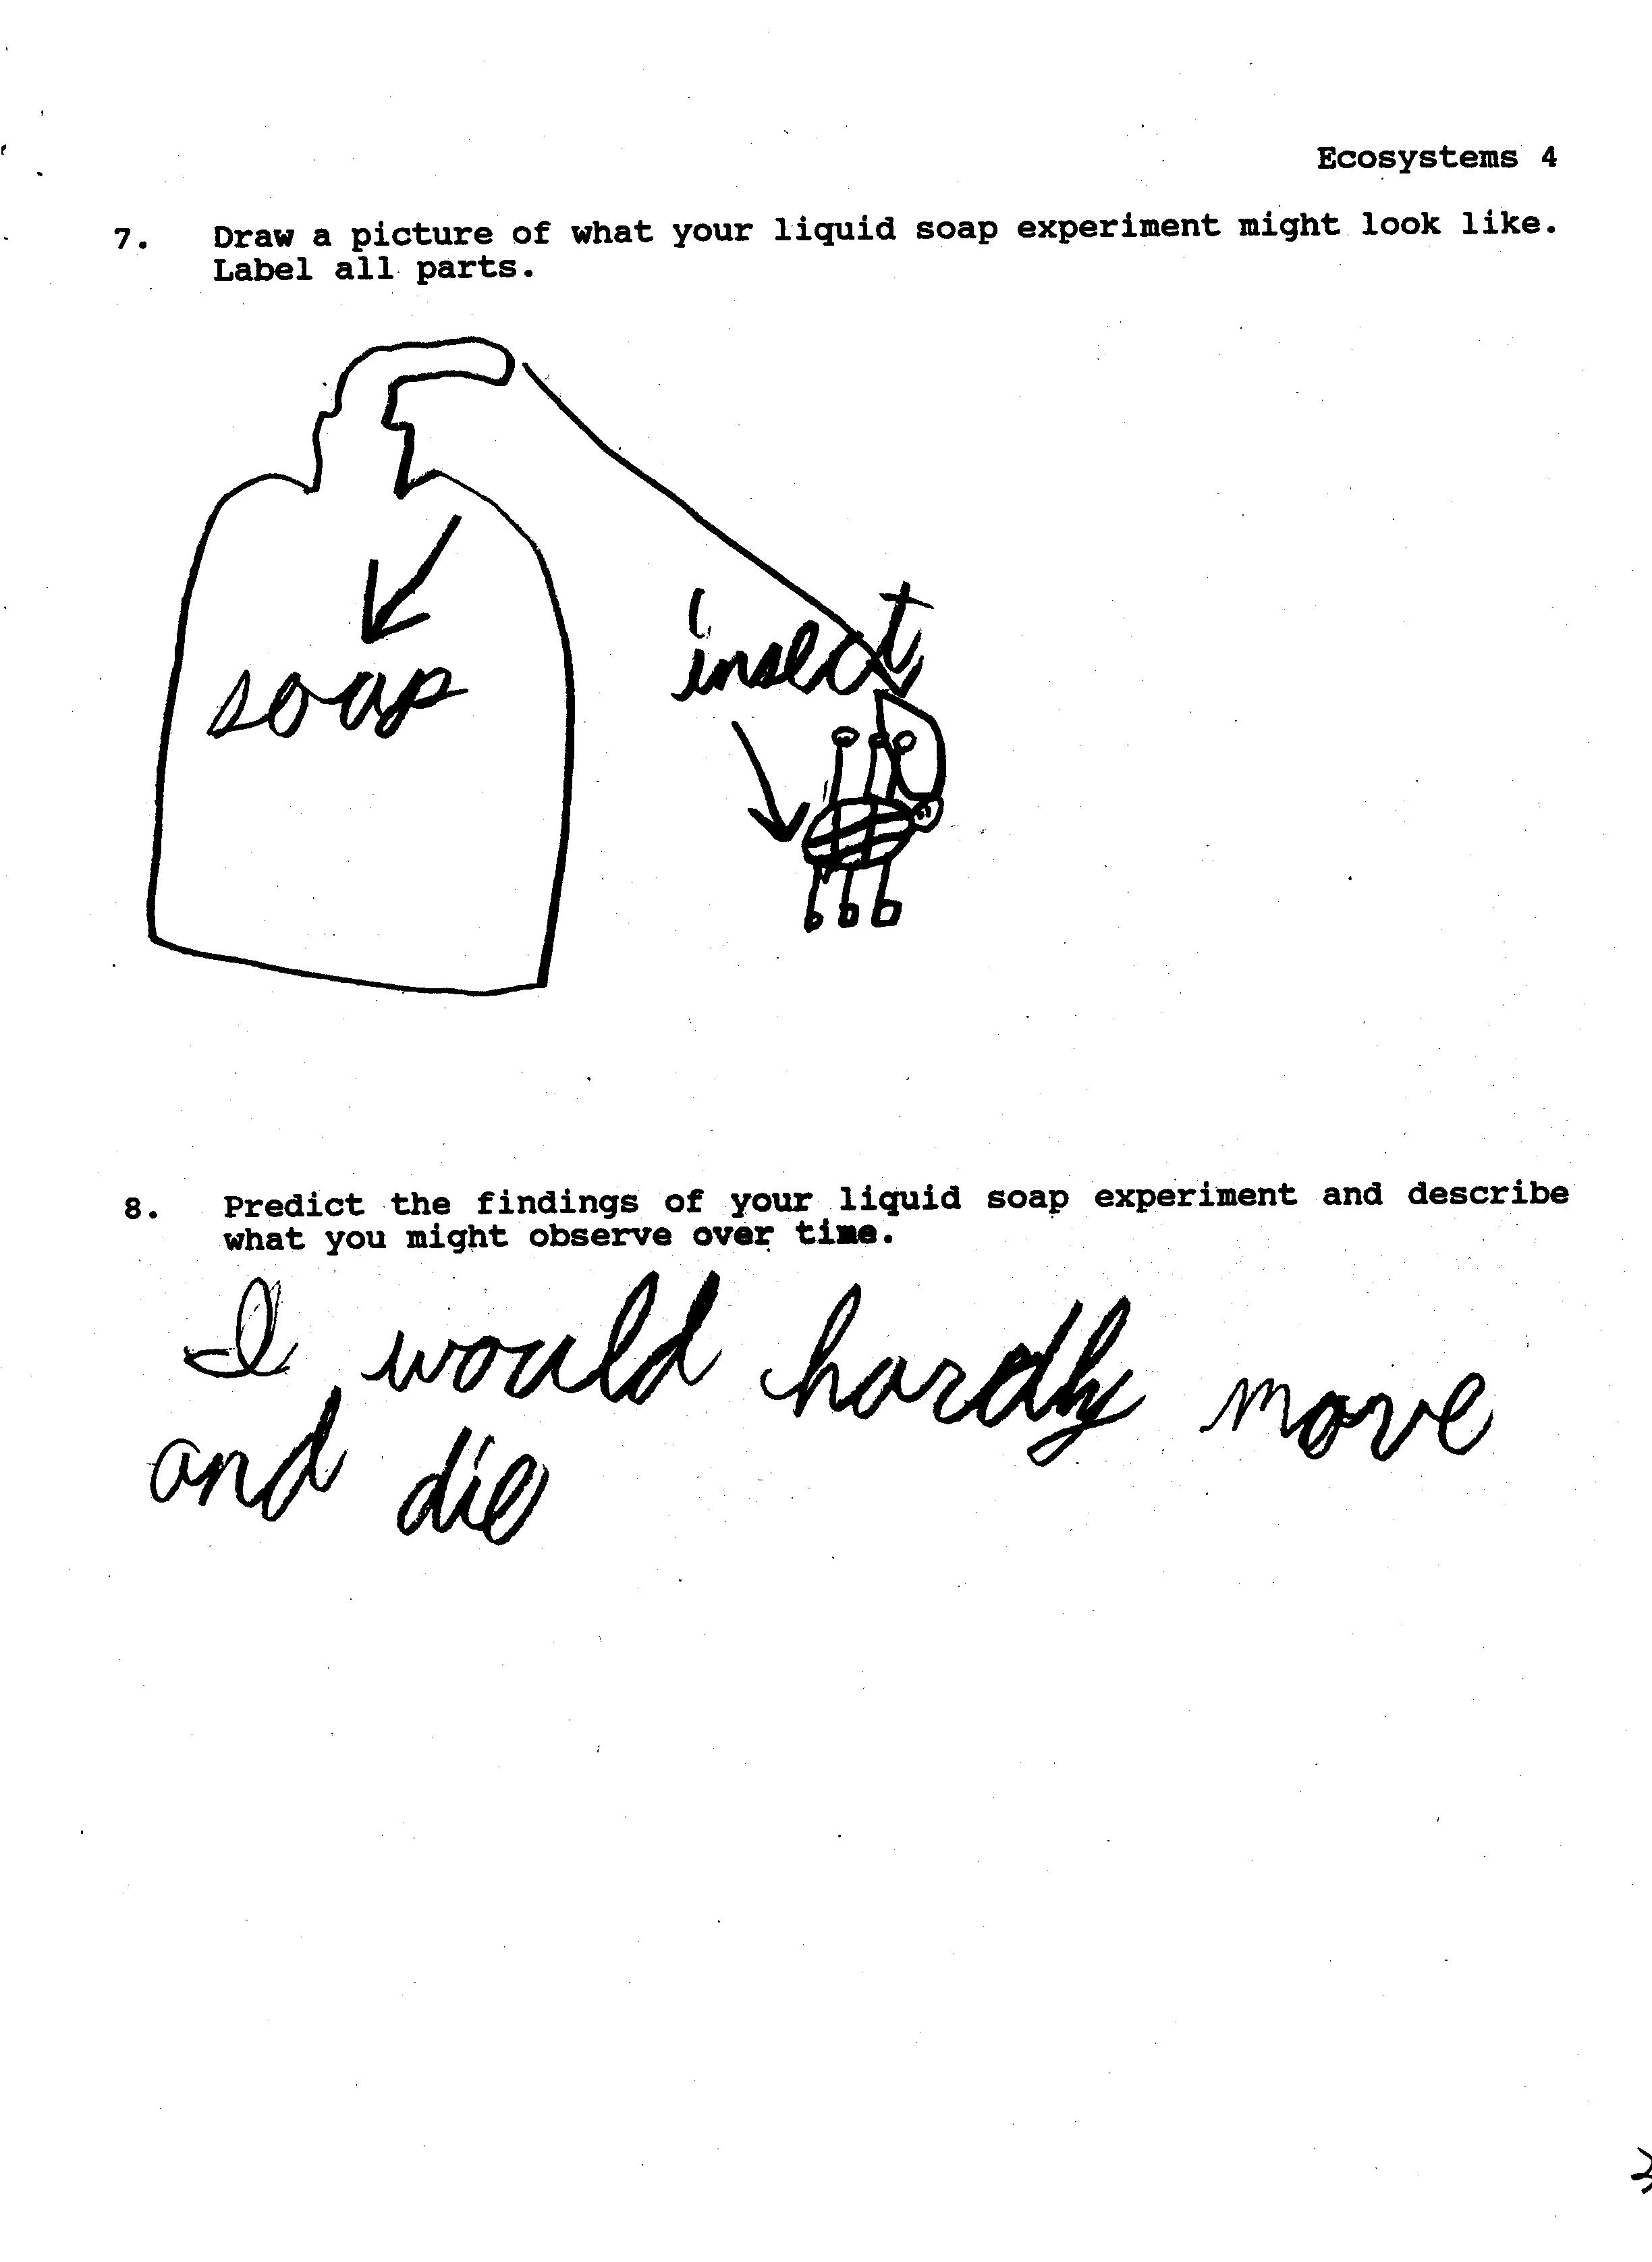 Ecosystems 4
7. Draw a picture of what your liquid soap experiment might look like.
Label all parts.
soap
insect
8. Predict the findings of your liquid soap experiment and describe
what you might observe over time.
I would hardly move
and die